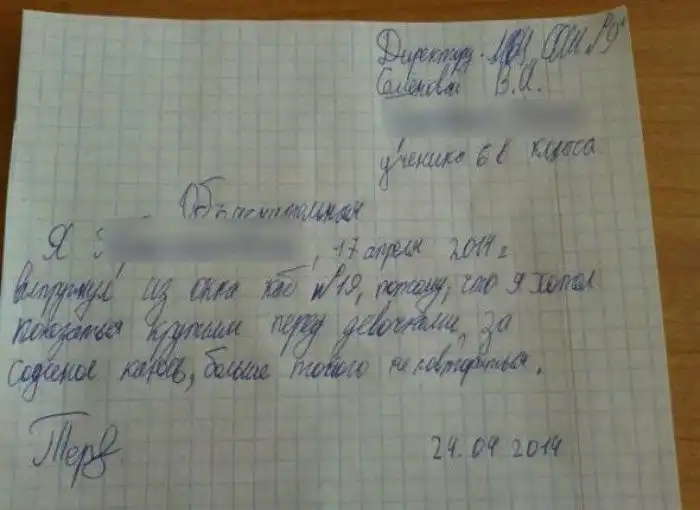 Директору МОУ СОШ №9
Семеновой В.И.
ученика 6 в класса
Объяснительная
Я , 17 апреля 2014 г
выпрыгнул из окна каб №19, потому, что я хотел
показаться крутым перед девочками, за
содеяное каюсь, больше такого не повторится.
24.04 2014